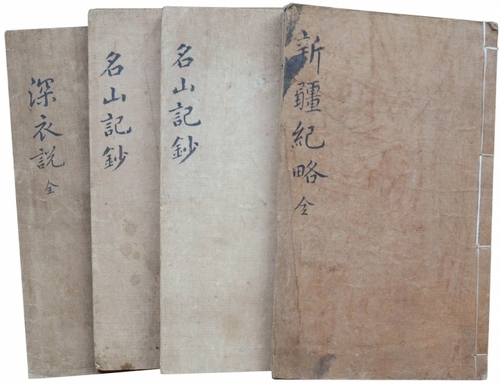 新疆紀略 全
名山記鈔
名山記鈔
深衣説 全